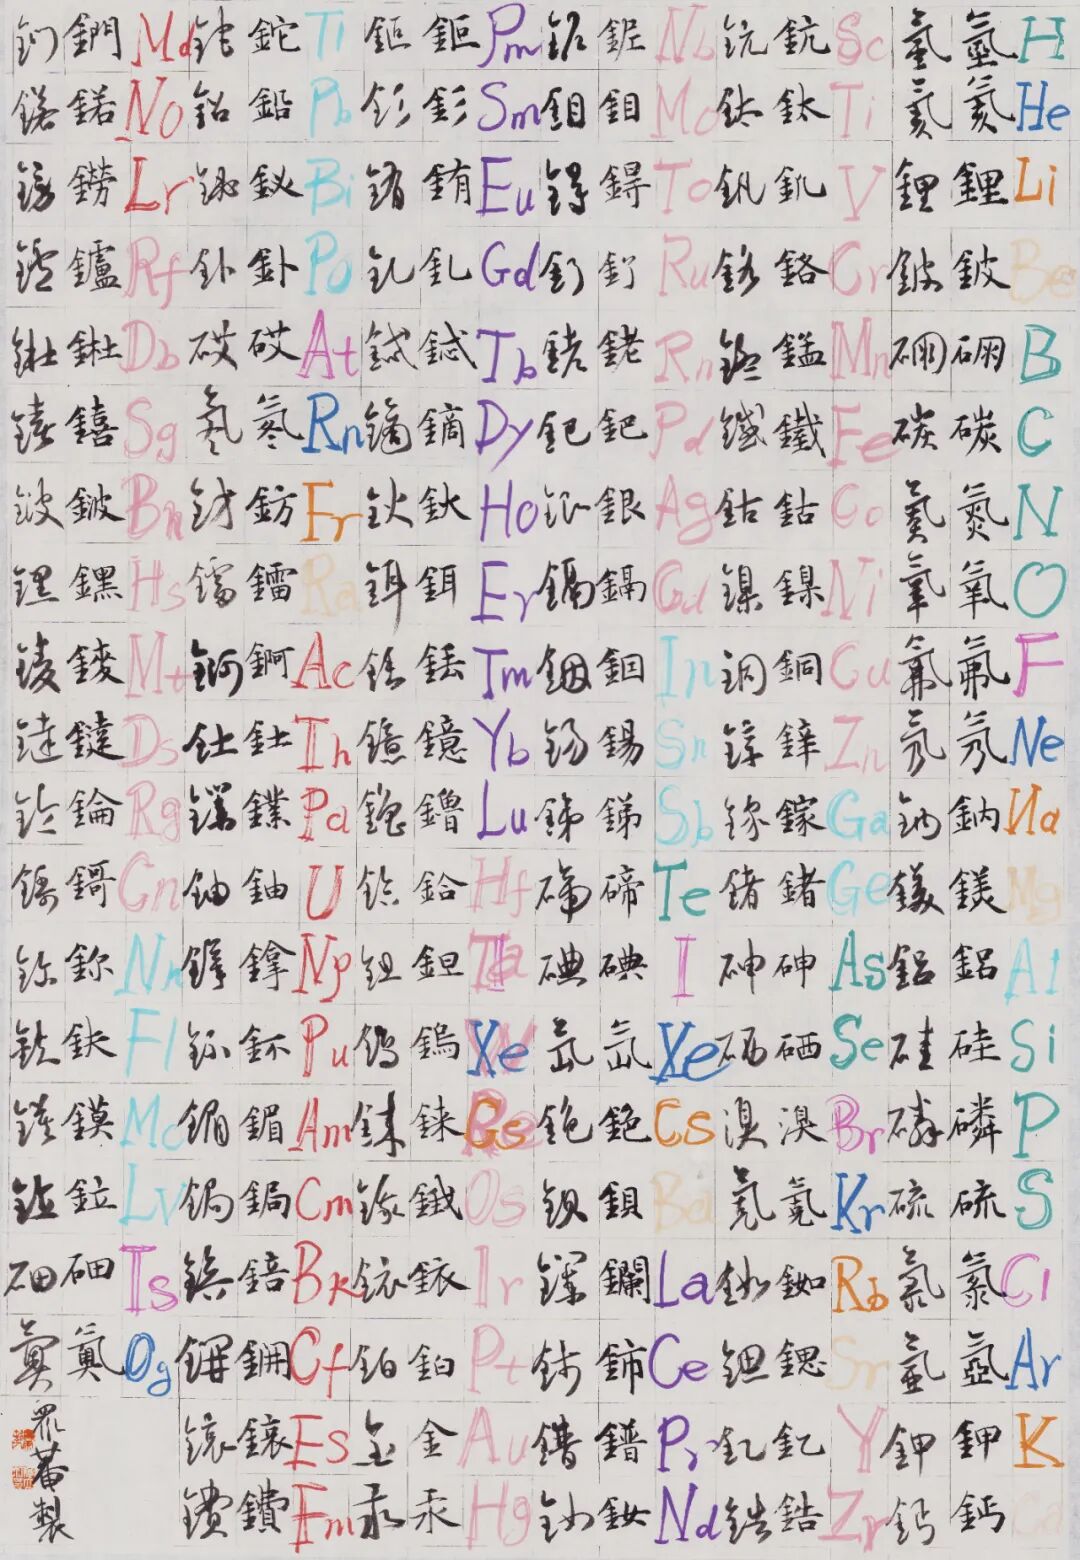 氫 氫 H
氦 氦 He
鋰 鋰 Li
鈹 鈹 Be
硼 硼 B
碳 碳 C
氮 氮 N
氧 氧 O
氟 氟 F
氖 氖 Ne
鈉 鈉 Na
鎂 鎂 Mg
鋁 鋁 Al
硅 硅 Si
磷 磷 P
硫 硫 S
氯 氯 Cl
氬 氬 Ar
鉀 鉀 K
鈣 鈣 Ca
鈧 鈧 Sc
鈦 鈦 Ti
釩 釩 V
鉻 鉻 Cr
錳 錳 Mn
鐵 鐵 Fe
鈷 鈷 Co
鎳 鎳 Ni
銅 銅 Cu
鋅 鋅 Zn
鎵 鎵 Ga
鍺 鍺 Ge
砷 砷 As
硒 硒 Se
溴 溴 Br
氪 氪 Kr
銣 銣 Rb
鍶 鍶 Sr
釔 釔 Y
鋯 鋯 Zr
鈮 鈮 Nb
鉬 鉬 Mo
鍀 鍀 To
釕 釕 Ru
銠 銠 Rn
鈀 鈀 Pd
銀 銀 Ag
鎘 鎘 Gd
銦 銦 In
錫 錫 Sn
銻 銻 Sb
碲 碲 Te
碘 碘 I
氙 氙 Xe
銫 銫 Cs
鋇 鋇 Ba
鑭 鑭 La
鈰 鈰 Ce
鐠 鐠 Pr
釹 釹 Nd
鉕 鉕 Pm
釤 釤 Sm
銪 銪 Eu
釓 釓 Gd
鋱 鋱 Tb
鏑 鏑 Dy
鈥 鈥 Ho
鉺 鉺 Er
銩 銩 Tm
鐿 鐿 Yb
鑥 鑥 Lu
鉿 鉿 Hf
鉭 鉭 Ta
鎢 鎢 Xe
錸 錸 Cs
鋨 鋨 Os
銥 銥 Ir
鉑 鉑 Pt
金 金 Au
汞 汞 Hg
鉈 鉈 Tl
鉛 鉛 Pb
鉍 鉍 Bi
釙 釙 Po
砹 砹 At
氡 氡 Rn
鈁 鈁 Fr
鐳 鐳 Ra
錒 錒 Ac
釷 釷 Th
鏷 鏷 Pa
鈾 鈾 U
鎿 鎿 Np
鈈 鈈 Pu
鎇 鎇 Am
鋦 鋦 Cm
錇 錇 Bk
鐦 鐦 Cf
鎄 鎄 Es
鐨 鐨 Fm
鍆 鍆 Md
鍩 鍩 No
鐒 鐒 Lr
鑪 鑪 Rf
𨧀 𨧀 Db
𨭎 𨭎 Sg
𨨏 𨨏 Bh
𨭆 𨭆 Hs
䥑 䥑 Mt
鐽 鐽 Ds
錀 錀 Rg
鎶 鎶 Cn
鉨 鉨 Nh
鈇 鈇 Fl
鏌 鏌 Mc
鉝 鉝 Lv
Ts
Og
菴製